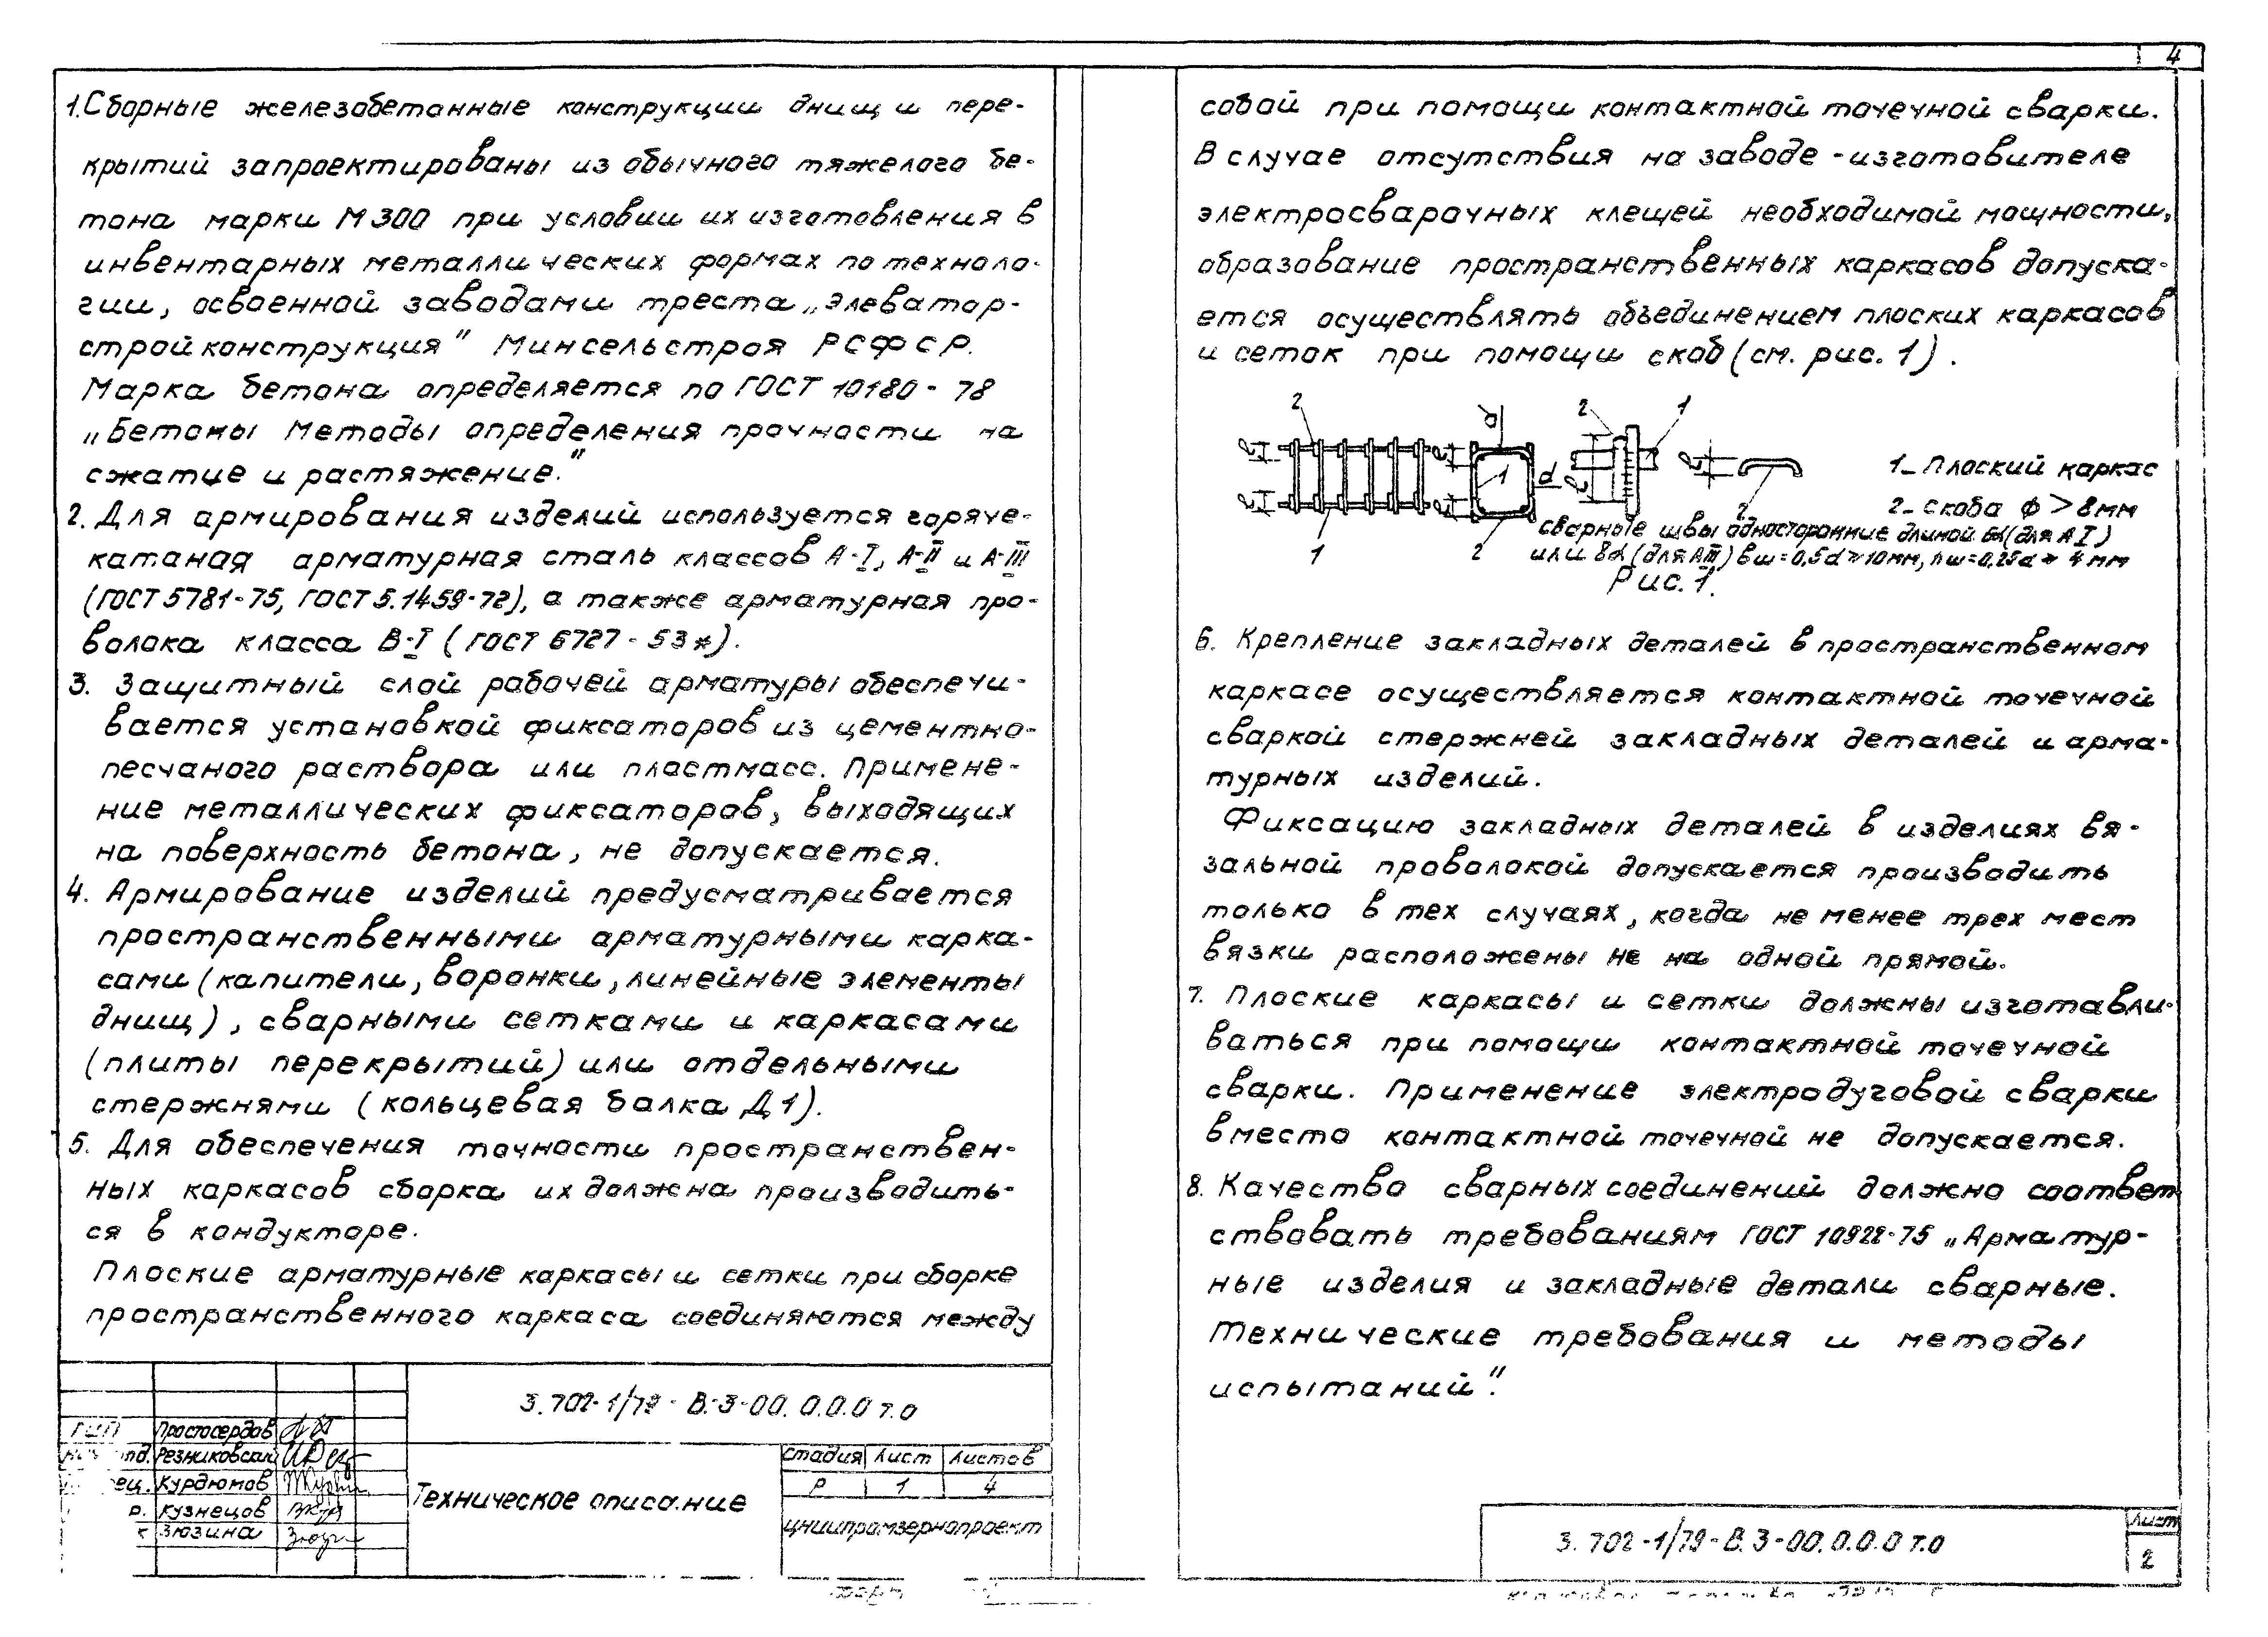 4
1. Сборные железобетонные конструкции днищ и пере-
крытий запроектированы из обычного тяжелого бе-
тона марки М300 при условии их изготовления в
инвентарных металлических формах по техноло-
гии, освоенной заводами треста „Элеватор-
стройконструкция" Минсельстроя РСФСР.
Марка бетона определяется по ГОСТ 10180-78
„Бетоны Методы определения прочности на
сжатие и растяжение."
2. Для армирования изделий используется горяче-
катаная арматурная сталь классов А-I, А-II и А-III
(ГОСТ 5781-75, ГОСТ 5.1459-72), а также арматурная про-
волока класса В-I (ГОСТ 6727-53*).
3. Защитный слой рабочей арматуры обеспечи-
вается установкой фиксаторов из цементно-
песчаного раствора или пластмасс. Примене-
ние металлических фиксаторов, выходящих
на поверхность бетона, не допускается.
4. Армирование изделий предусматривается
пространственными арматурными карка-
сами (капители, воронки, линейные элементы
днищ), сварными сетками и каркасами
(плиты перекрытий) или отдельными
стержнями (кольцевая балка Д1).
5. Для обеспечения точности пространствен-
ных каркасов сборка их должна производить-
ся в кондукторе.
Плоские арматурные каркасы и сетки при сборке
пространственного каркаса соединяются между
3.702-1/79-В.3-00.0.0.0 т.о
ГИП Простосердов
Резниковский
Курдюмов
Кузнецов
Зюзина
Техническое описание
Стадия Лист Листов
Р 1 4
ЦНИИпромзернопроект
собой при помощи контактной точечной сварки.
В случае отсутствия на заводе-изготовителе
электросварочных клещей необходимой мощности,
образование пространственных каркасов допуска-
ется осуществлять объединением плоских каркасов
и сеток при помощи скоб (см. рис. 1).
2 d 2 1
1 d
1 2 2
1- Плоский каркас
2- Скоба ф > 8мм
сварные швы односторонние длиной 6d (для АI)
или 8d (для АIII) bш=0,5d≥10мм, hш=0,25d≥4мм
Рис. 1.
6. Крепление закладных деталей в пространственном
каркасе осуществляется контактной точечной
сваркой стержней закладных деталей и арма-
турных изделий.
Фиксацию закладных деталей в изделиях вя-
зальной проволокой допускается производить
только в тех случаях, когда не менее трех мест
вязки расположены не на одной прямой.
7. Плоские каркасы и сетки должны изготавли-
ваться при помощи контактной точечной
сварки. Применение электродуговой сварки
вместо контактной точечной не допускается.
8. Качество сварных соединений должно соответ
ствовать требованиям ГОСТ 10922-75 „Арматур-
ные изделия и закладные детали сварные.
Технические требования и методы
испытаний".
3.702-1/79-В.3-00.0.0.0 т.о
Лист
2